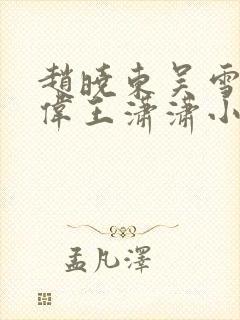 趙曉東吴雪
偉王瀟瀟小
孟凡澤